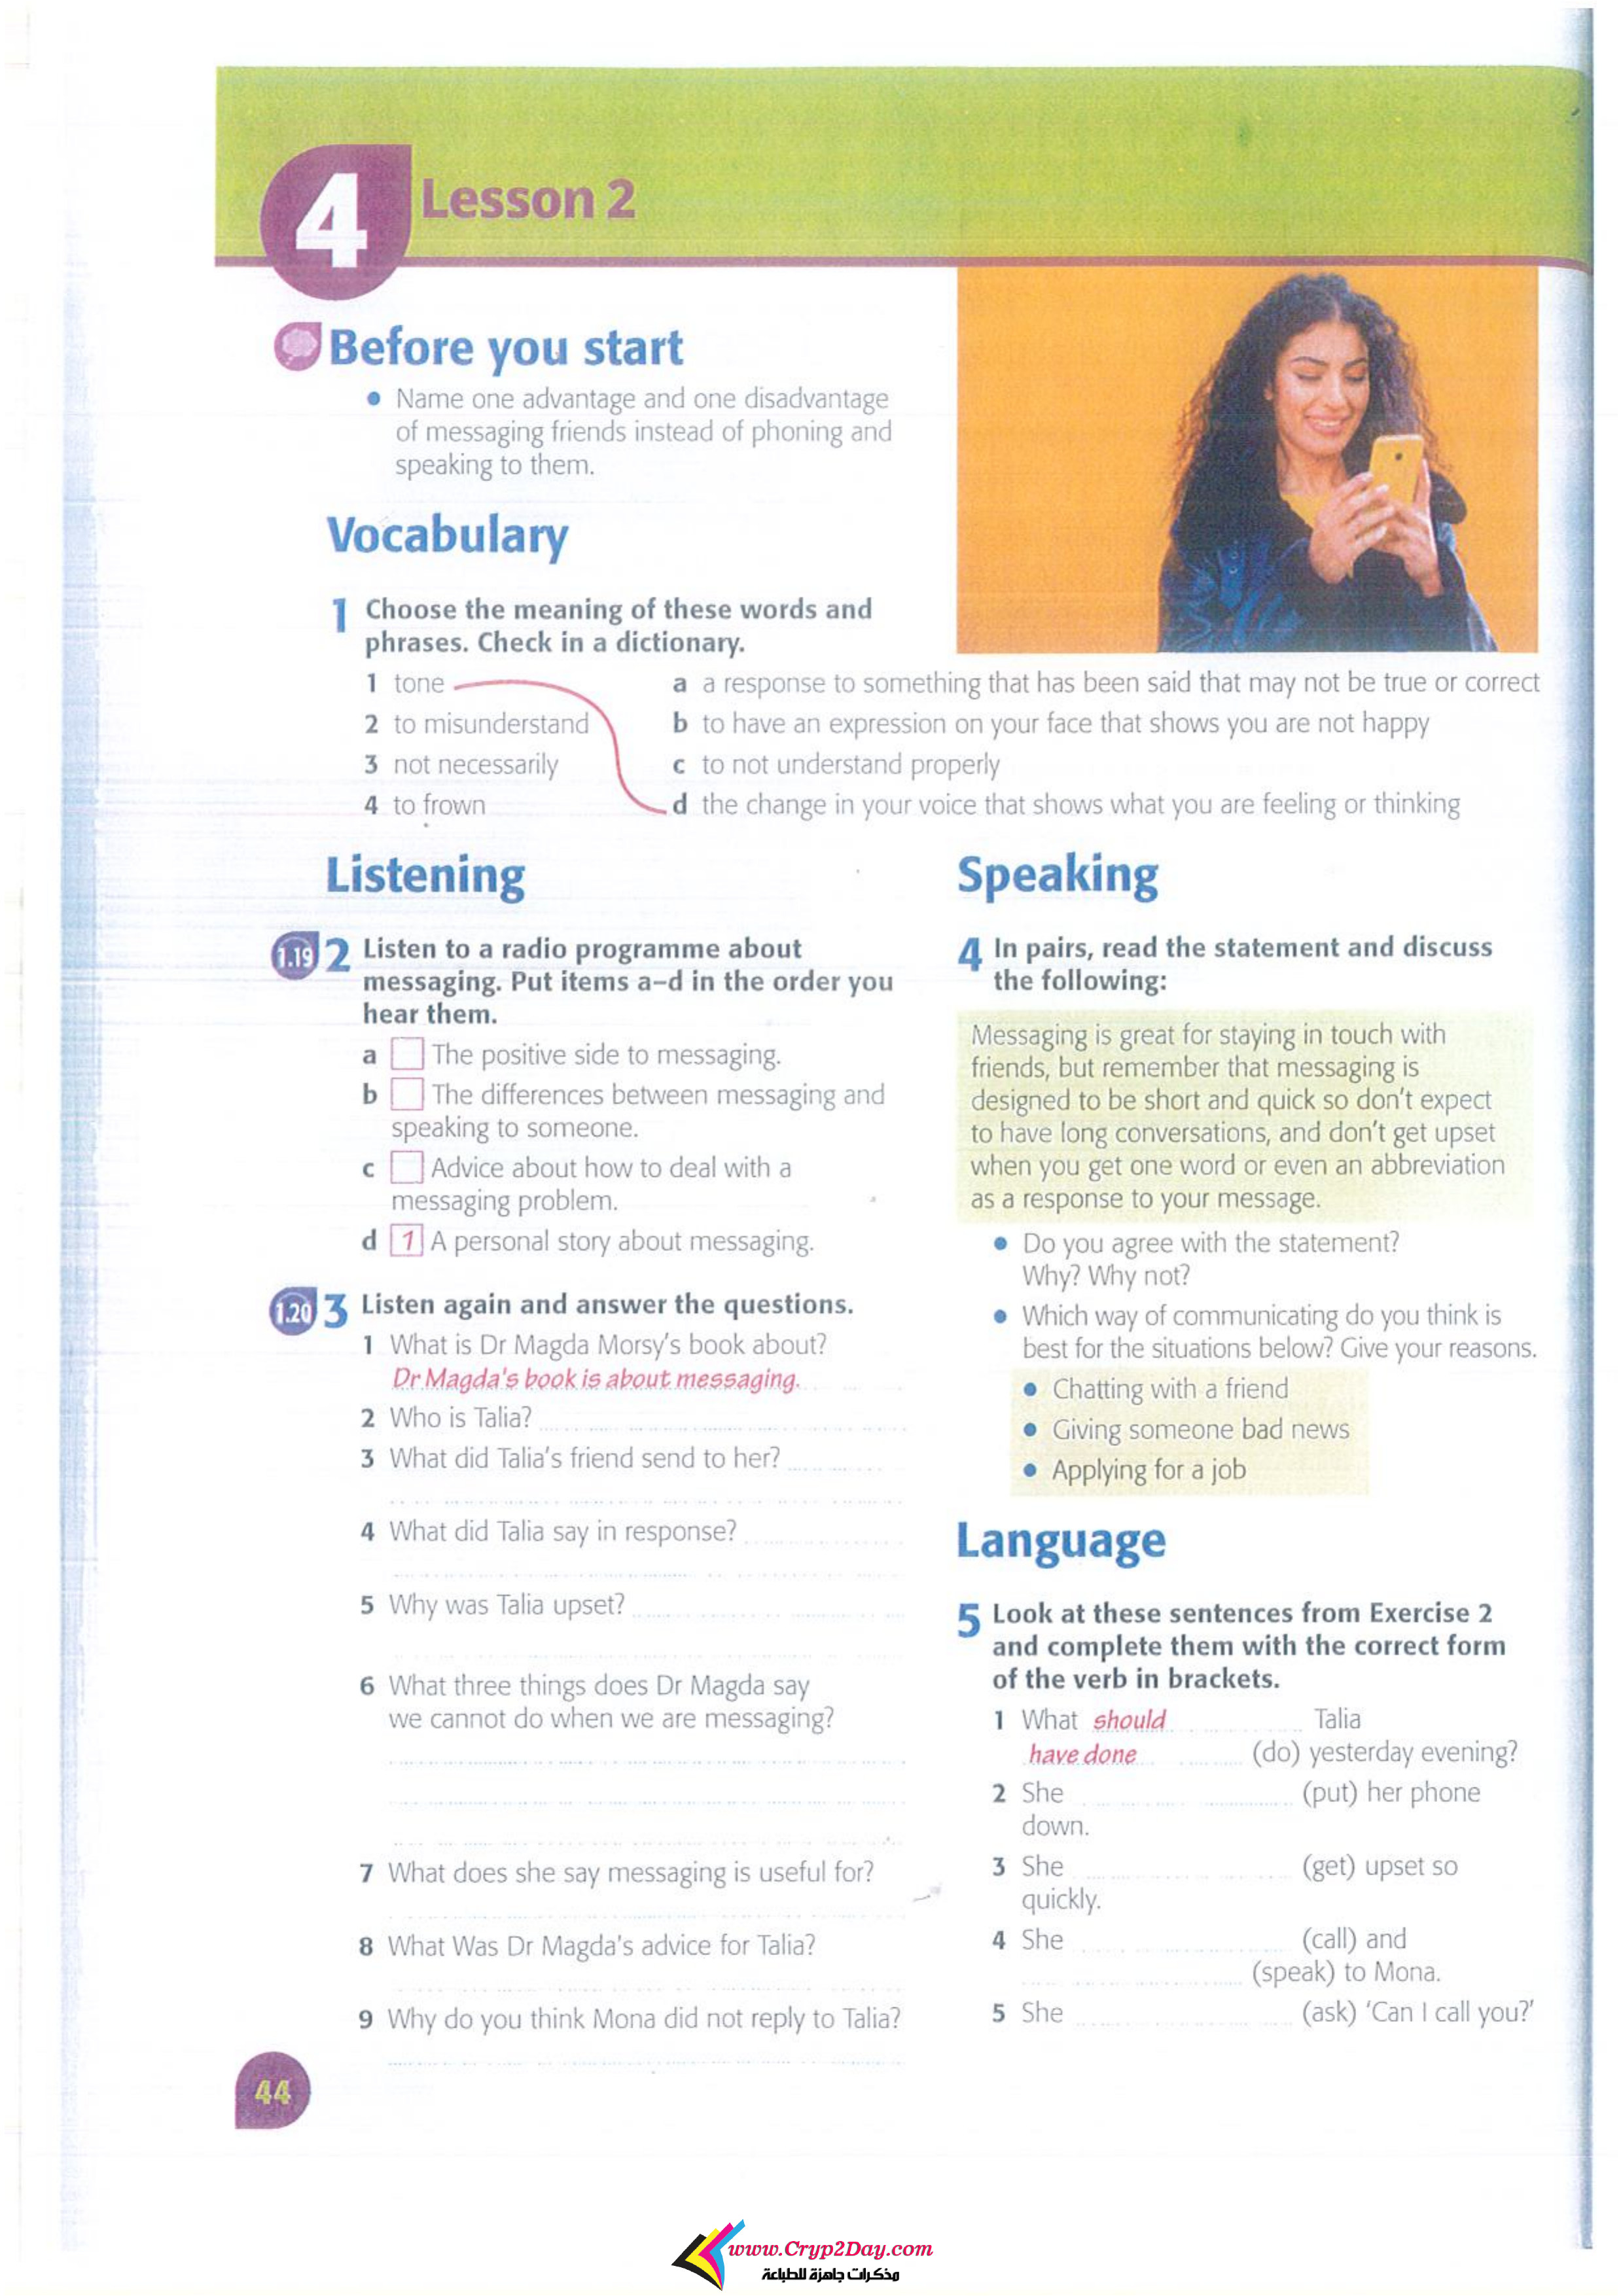 4 Lesson 2
Before you start
• Name one advantage and one disadvantage
of messaging friends instead of phoning and
speaking to them.
Vocabulary
1 Choose the meaning of these words and
phrases. Check in a dictionary.
1 tone a a response to something that has been said that may not be true or correct
2 to misunderstand b to have an expression on your face that shows you are not happy
3 not necessarily c to not understand properly
4 to frown d the change in your voice that shows what you are feeling or thinking
Listening
1.19 2 Listen to a radio programme about
messaging. Put items a–d in the order you
hear them.
a The positive side to messaging.
b The differences between messaging and
speaking to someone.
c Advice about how to deal with a
messaging problem.
d 1 A personal story about messaging.
1.20 3 Listen again and answer the questions.
1 What is Dr Magda Morsy's book about?
Dr Magda's book is about messaging.
2 Who is Talia?
3 What did Talia's friend send to her?
4 What did Talia say in response?
5 Why was Talia upset?
6 What three things does Dr Magda say
we cannot do when we are messaging?
7 What does she say messaging is useful for?
8 What Was Dr Magda's advice for Talia?
9 Why do you think Mona did not reply to Talia?
Speaking
4 In pairs, read the statement and discuss
the following:
Messaging is great for staying in touch with
friends, but remember that messaging is
designed to be short and quick so don't expect
to have long conversations, and don't get upset
when you get one word or even an abbreviation
as a response to your message.
• Do you agree with the statement?
Why? Why not?
• Which way of communicating do you think is
best for the situations below? Give your reasons.
• Chatting with a friend
• Giving someone bad news
• Applying for a job
Language
5 Look at these sentences from Exercise 2
and complete them with the correct form
of the verb in brackets.
1 What should Talia
have done (do) yesterday evening?
2 She (put) her phone
down.
3 She (get) upset so
quickly.
4 She (call) and
(speak) to Mona.
5 She (ask) 'Can I call you?'
44
www.Cryp2Day.com
مذكرات جاهزة للطباعة